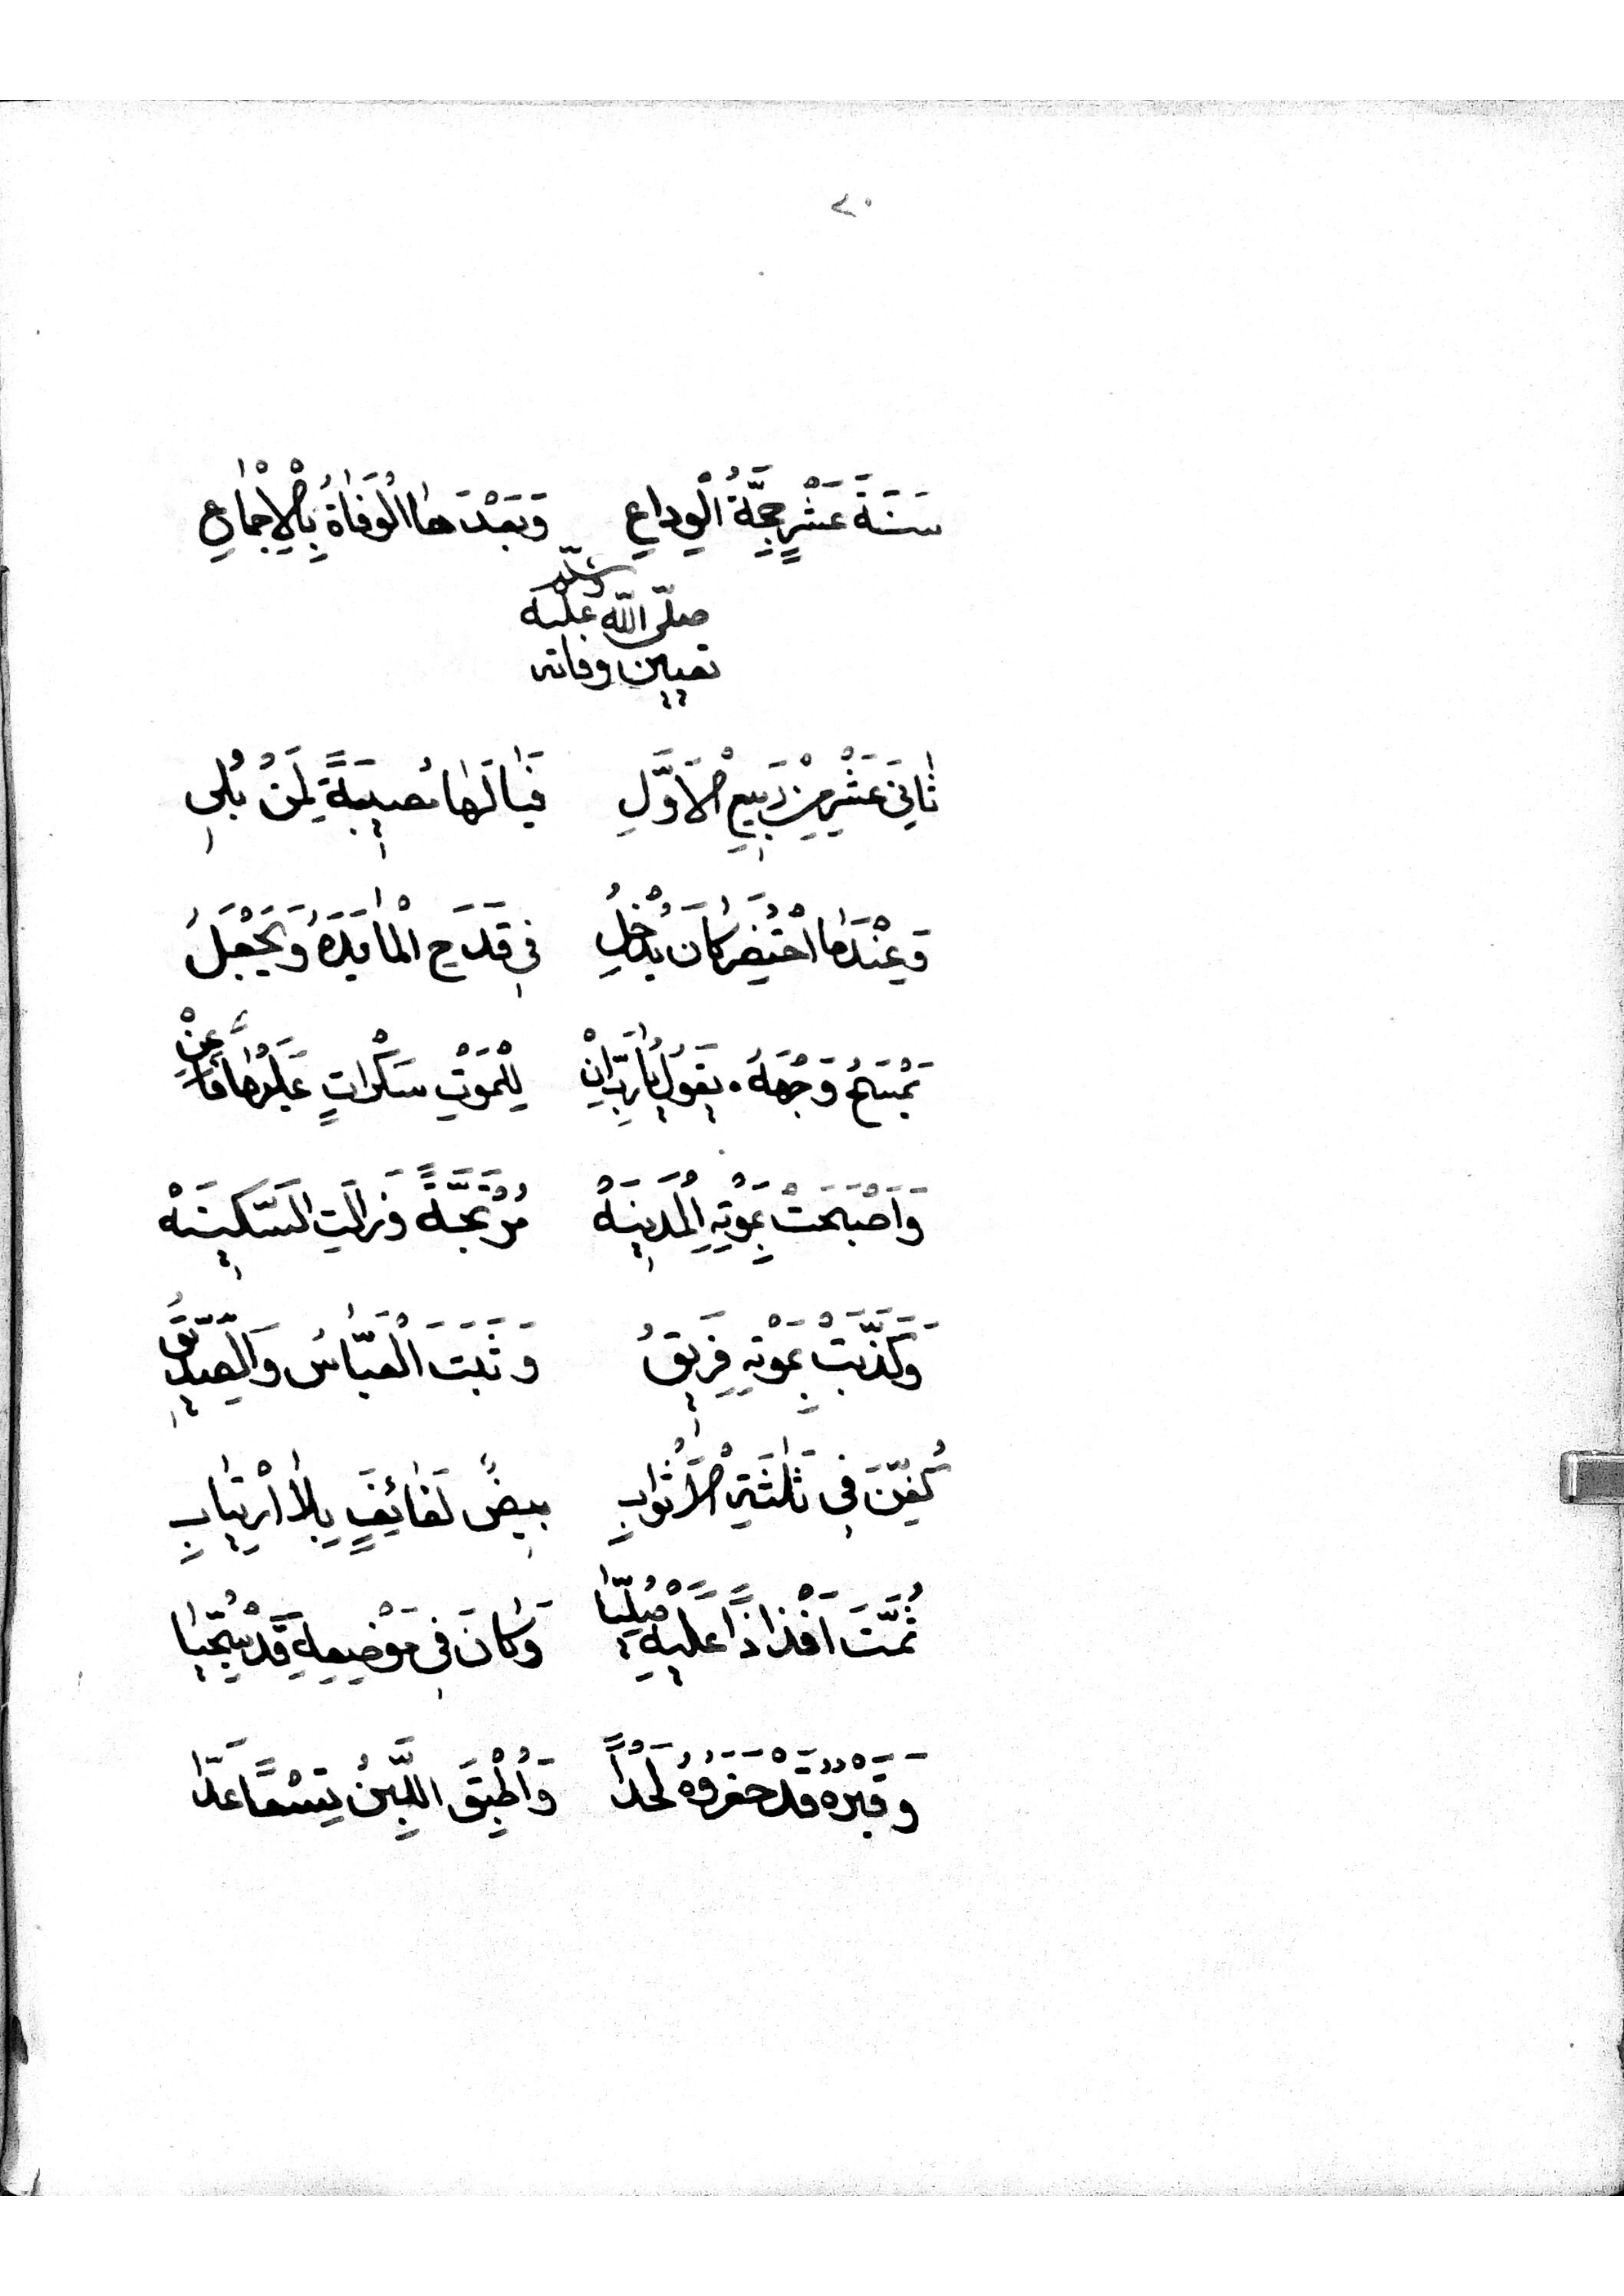 ٢٠
سَنَةَ عَشْرٍ حِجَّةُ الْوِدَاعِ وَبَعْدَهَا الْوَفَاةُ بِالْإِجْمَاعِ
صلّى اللّه عليه وسلّم
تعيين وفاته
ثَانِيَ عَشْرٍ مِنْ رَبِيعِ الْأَوَّلِ فَيَا لَهَا مُصِيبَةً لِمَنْ بُلِي
وَعِنْدَمَا احْتُضِرَ كَانَ يُدْخِلُ فِي قَدَحِ الْمَا يَدَهُ وَيَجْعَلُ
يَمْسَحُ وَجْهَهُ يَقُولُ يَا رَبِّ إِنْ لِلْمَوْتِ سَكْرَاتٍ عَلَيْهَا فَأَعِنْ
وَأَصْبَحَتْ بِمَوْتِهِ الْمَدِينَهْ مُرْتَجَّةً وَزَالَتِ السَّكِينَهْ
وَكَذَّبَتْ بِمَوْتِهِ فَرِيقُ وَثَبَتَ الْعَبَّاسُ وَالصِّدِّيقُ
كُفِّنَ فِي ثَلٰثَةِ الْأَثْوَابِ بِيضٌ لَفَائِفٍ بِلَا ارْتِيَابِ
ثُمَّتَ أَفْذَاذًا عَلَيْهِ صُلِّيَا وَكَانَ فِي مَوْضِعِهِ قَدْ سُجِّيَا
وَقَبْرُهُ قَدْ حَفَرُوهُ لَحْدًا وَأُطْبِقَ اللَّبِنُ تِسْعًا عَدَّا